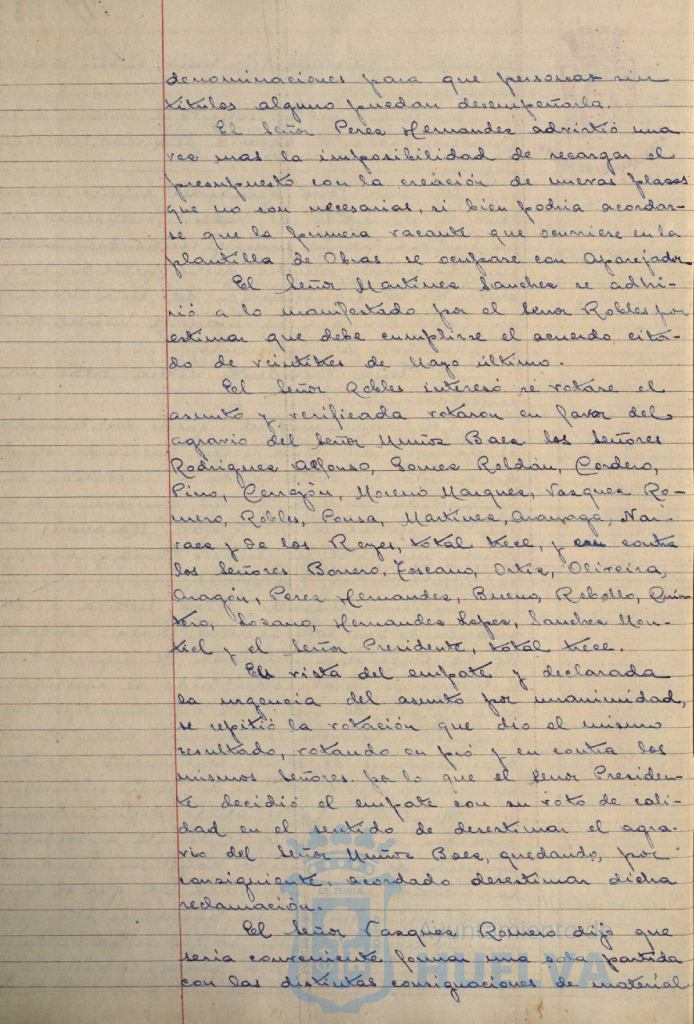 denominaciones para que personas sin
titulos alguno puedan desempeñarla.
El Señor Perez Hernandez advirtió una
vez mas la imposibilidad de recargar el
presupuesto con la creación de nuevas plazas
que no son necesarias, si bien podria acordar-
se que la primera vacante que ocurriere en la
plantilla de Obras se ocupare con Aparejador
El Señor Martinez Sanchez se adhi-
rió a lo manifestado por el Señor Robles por
estimar que debe cumplirse el acuerdo cita-
do de veintitres de Mayo último.
El Señor Robles interesó se votare el
asunto y verificada votaron en favor del
agravio del Señor Muñoz Baez los Señores
Rodriguez Alfonso, Gomez Roldán, Cordero,
Pino, Cerrejón, Moreno Marquez, Vazquez Ro-
mero, Robles, Ponsa, Martinez, Arayaga, Nai-
raez y de los Reyes, total trece, y en contra
los Señores Borrero, Toscano, Ortiz, Oliveira,
Aragón, Perez Hernandez, Bueno, Rebollo, Quin-
tero, Lozano, Hernandez Lopez, Sanchez Mon-
tiel y el Señor Presidente, total trece.
En vista del empate y declarada
la urgencia del asunto por unanimidad,
se repitió la votación que dio el mismo
resultado, votando en pró y en contra los
mismos Señores. por lo que el Señor Presiden-
te decidió el empate con su voto de cali-
dad en el sentido de desestimar el agra-
vio del Señor Muñoz Baez, quedando, por
consiguiente, acordado desestimar dicha
reclamación.
El Señor Vazquez Romero dijo que
seria conveniente formar una sola partida
con las distintas consignaciones de material
Ayuntamiento de
HUELVA